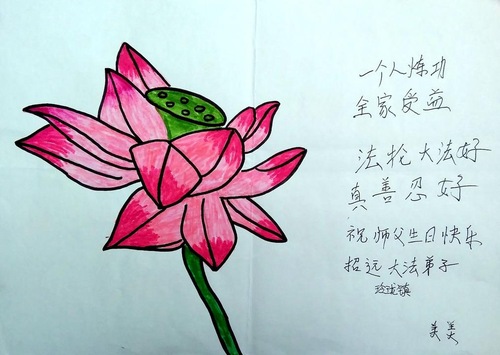 一个人炼功
全家受益
法轮大法好
真善忍好
祝师父生日快乐
招远大法弟子
玲珑镇
美美